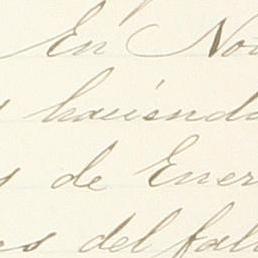 En No
haciendo
s de Ener
os del fal